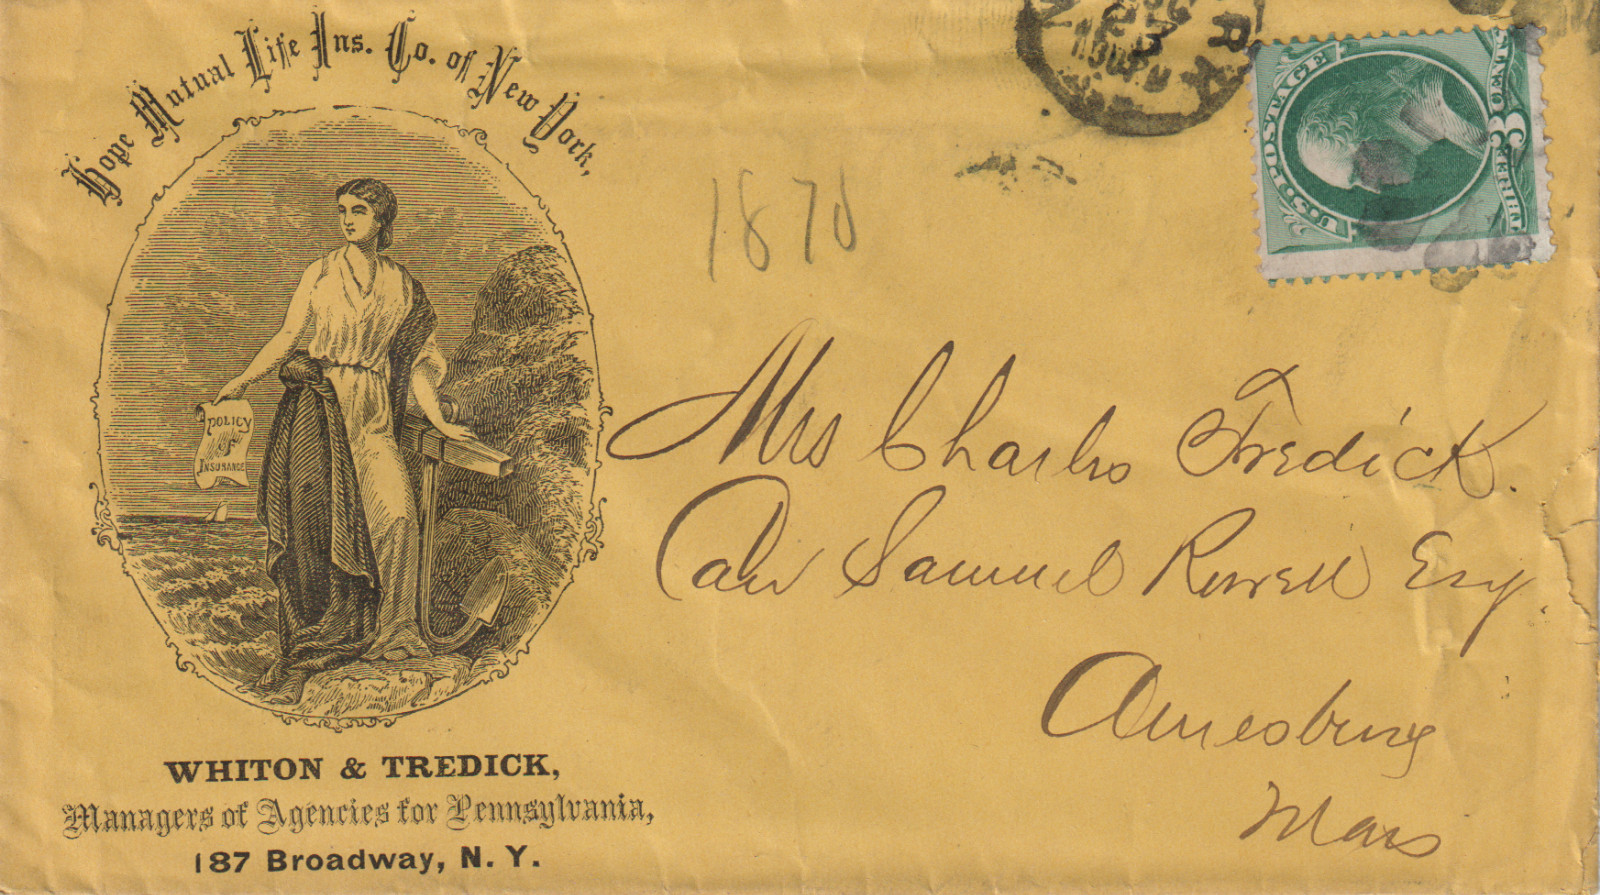 Hope Mutual Life Ins. Co. of New York,
POLICY
OF
INSURANCE
WHITON & TREDICK,
Managers of Agencies for Pennsylvania,
187 Broadway, N. Y.
1870
U.S. POSTAGE
3
CENTS
Mrs Charles Tredick.
Care Samuel Rowell Esq.
Amesbury
Mass